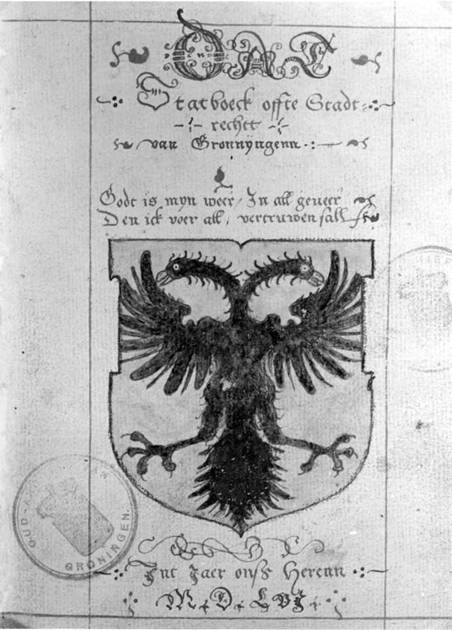 DAT
Statboeck offte Stadt-
rechtt
van Gronnyngenn
Godt is myn weer, In all geveer
Den ick voer all, vertruwen sall
Int Jaer onss Herenn
M.D.LVJ.
OUD- GRONINGEN.